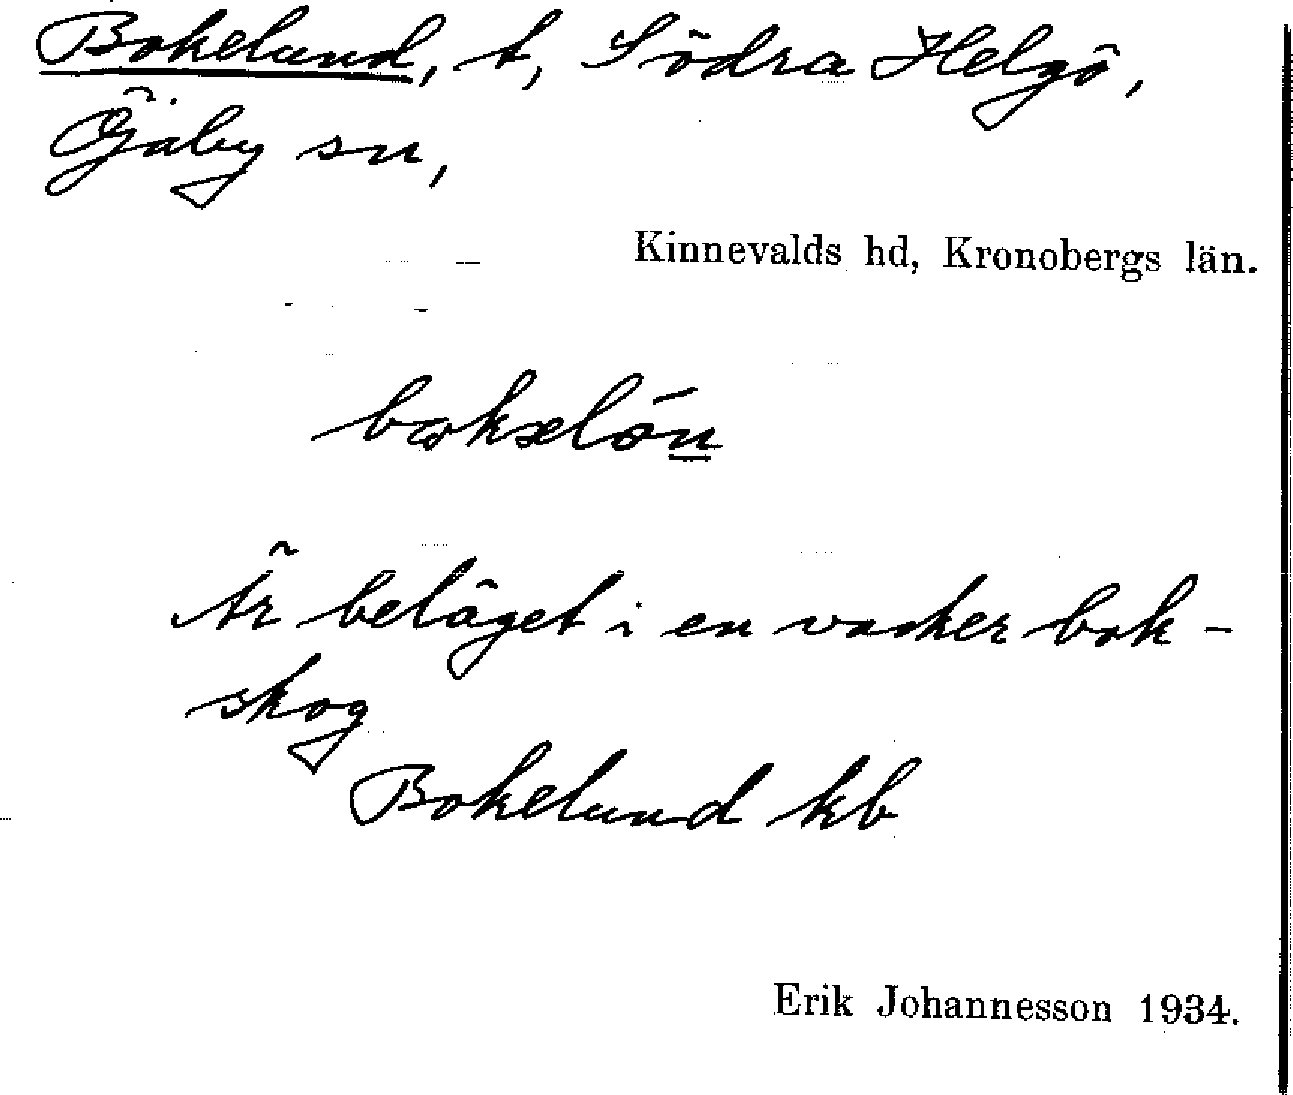 Bokelund, t, Södra Helgö,
Öjaby sn,
Kinnevalds hd, Kronobergs län.
bωkælón
Är beläget i en vacker bok-
skog
Bokelund kb
Erik Johannesson 1934.